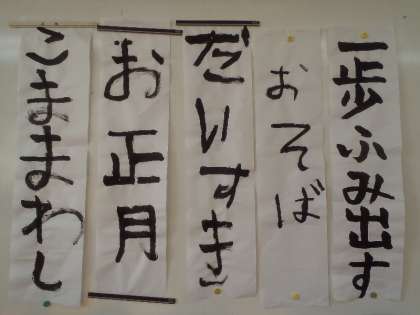 一歩ふみ出す
おそば
だいすき
お正月
こままわし